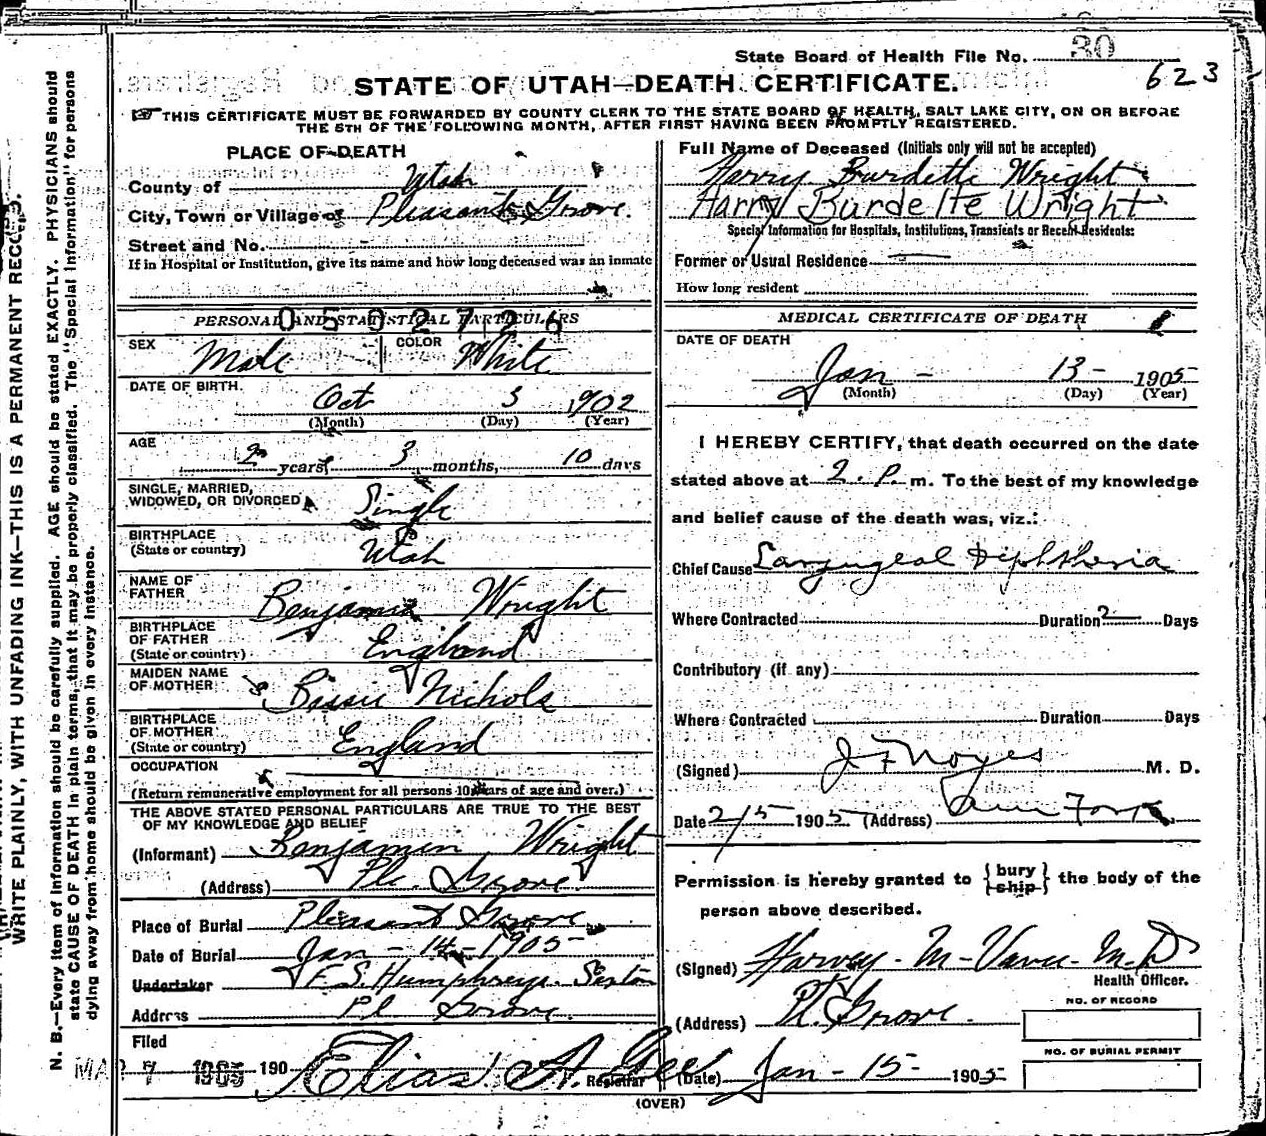 State Board of Health File No. 30
623
STATE OF UTAH—DEATH CERTIFICATE.
THIS CERTIFICATE MUST BE FORWARDED BY COUNTY CLERK TO THE STATE BOARD OF HEALTH, SALT LAKE CITY, ON OR BEFORE
THE 5TH OF THE FOLLOWING MONTH, AFTER FIRST HAVING BEEN PROMPTLY REGISTERED.
PLACE OF DEATH
County of Utah
City, Town or Village of Pleasant Grove.
Street and No.
If in Hospital or Institution, give its name and how long deceased was an inmate
PERSONAL AND STATISTICAL PARTICULARS
SEX Male COLOR White
DATE OF BIRTH. Oct 3 1902
(Month) (Day) (Year)
AGE
2 years, 3 months, 10 days
SINGLE, MARRIED,
WIDOWED, OR DIVORCED Single
BIRTHPLACE
(State or country) Utah
NAME OF
FATHER Benjamin Wright
BIRTHPLACE
OF FATHER
(State or country) England
MAIDEN NAME
OF MOTHER Bessie Nichols
BIRTHPLACE
OF MOTHER
(State or country) England
OCCUPATION
(Return remunerative employment for all persons 10 years of age and over.)
THE ABOVE STATED PERSONAL PARTICULARS ARE TRUE TO THE BEST
OF MY KNOWLEDGE AND BELIEF
(Informant) Benjamin Wright
(Address) Pl. Grove
Place of Burial Pleasant Grove
Date of Burial Jan - 14 - 1905
Undertaker F. S. Humphreys. Sexton
Address Pl Grove.
Filed
MAR 7 1905 190 Elias A. Gee
Registrar
Full Name of Deceased (Initials only will not be accepted)
Harry Burdette Wright
Harry Burdette Wright
Special Information for Hospitals, Institutions, Transients or Recent Residents:
Former or Usual Residence
How long resident
MEDICAL CERTIFICATE OF DEATH
DATE OF DEATH
Jan - 13 - 1905
(Month) (Day) (Year)
I HEREBY CERTIFY, that death occurred on the date
stated above at 2. P. m. To the best of my knowledge
and belief cause of the death was, viz.:
Chief Cause Laryngeal Diphtheria
Where Contracted Duration ? Days
Contributory (if any)
Where Contracted Duration Days
(Signed) J F Noyes M. D.
Date 2/5 1905 (Address) Am Fork
Permission is hereby granted to {bury
ship} the body of the
person above described.
(Signed) M. D.
Health Officer.
(Address) Pl. Grove.
NO. OF RECORD
NO. OF BURIAL PERMIT
(Date) Jan - 15 - 1905
(OVER)
WRITE PLAINLY, WITH UNFADING INK—THIS IS A PERMANENT RECORD.
N. B.—Every item of Information should be carefully supplied. AGE should be stated EXACTLY. PHYSICIANS should
state CAUSE OF DEATH in plain terms, that it may be properly classified. The "Special Information" for persons
dying away from home should be given in every instance.